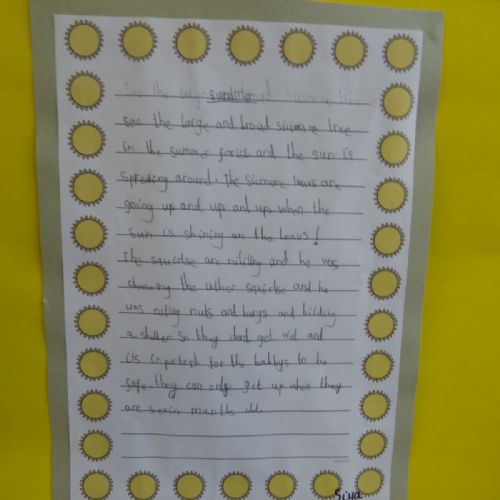 the summer
see the large and broud sicmore tree
in the summer forist and the sun is
spreding around. The sicmore leavs are
going up and up and up when the
sun is shining on the leavs!
the squirlse are nibiling and he was
the uther squirlse and he
was eating nuts and and bilding
a shelter so they dont get wet and
its inportent for the babbys to be
safe they can only get up when they
are old.
Siya